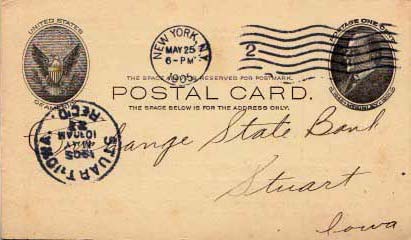 UNITED STATES
OF AMERICA
NEW YORK, N.Y.
MAY 25
6-PM
1905
2
POSTAGE ONE CENT
THE SPACE RESERVED FOR POSTMARK.
POSTAL CARD.
THE SPACE BELOW IS FOR THE ADDRESS ONLY.
STUART, IOWA
REC'D.
MAY
10 AM
1905
Exchange State Bank
Stuart
Iowa